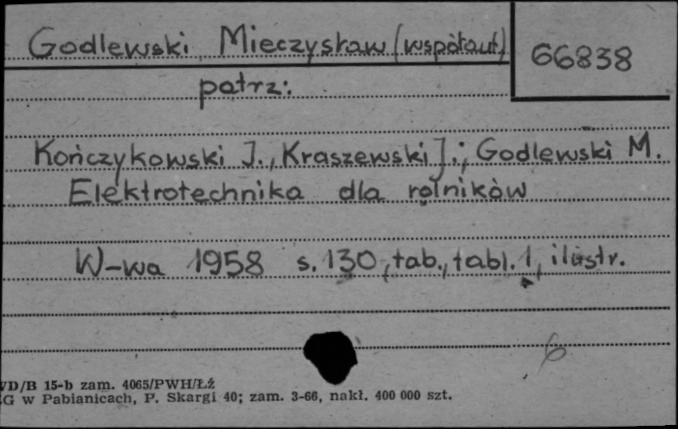 Godlewski Mieczysław (współaut)
66838
patrz:
Kończykowski J., Kraszewski J.; Godlewski M.
Elektrotechnika dla rolników
W-wa 1958 s. 130, tab., tabl. 1, ilustr.
6
/B 15-b zam. 4065/PWH/Łź
G w Pabianicach, P. Skargi 40; zam. 3-66, nakł. 400 000 szt.